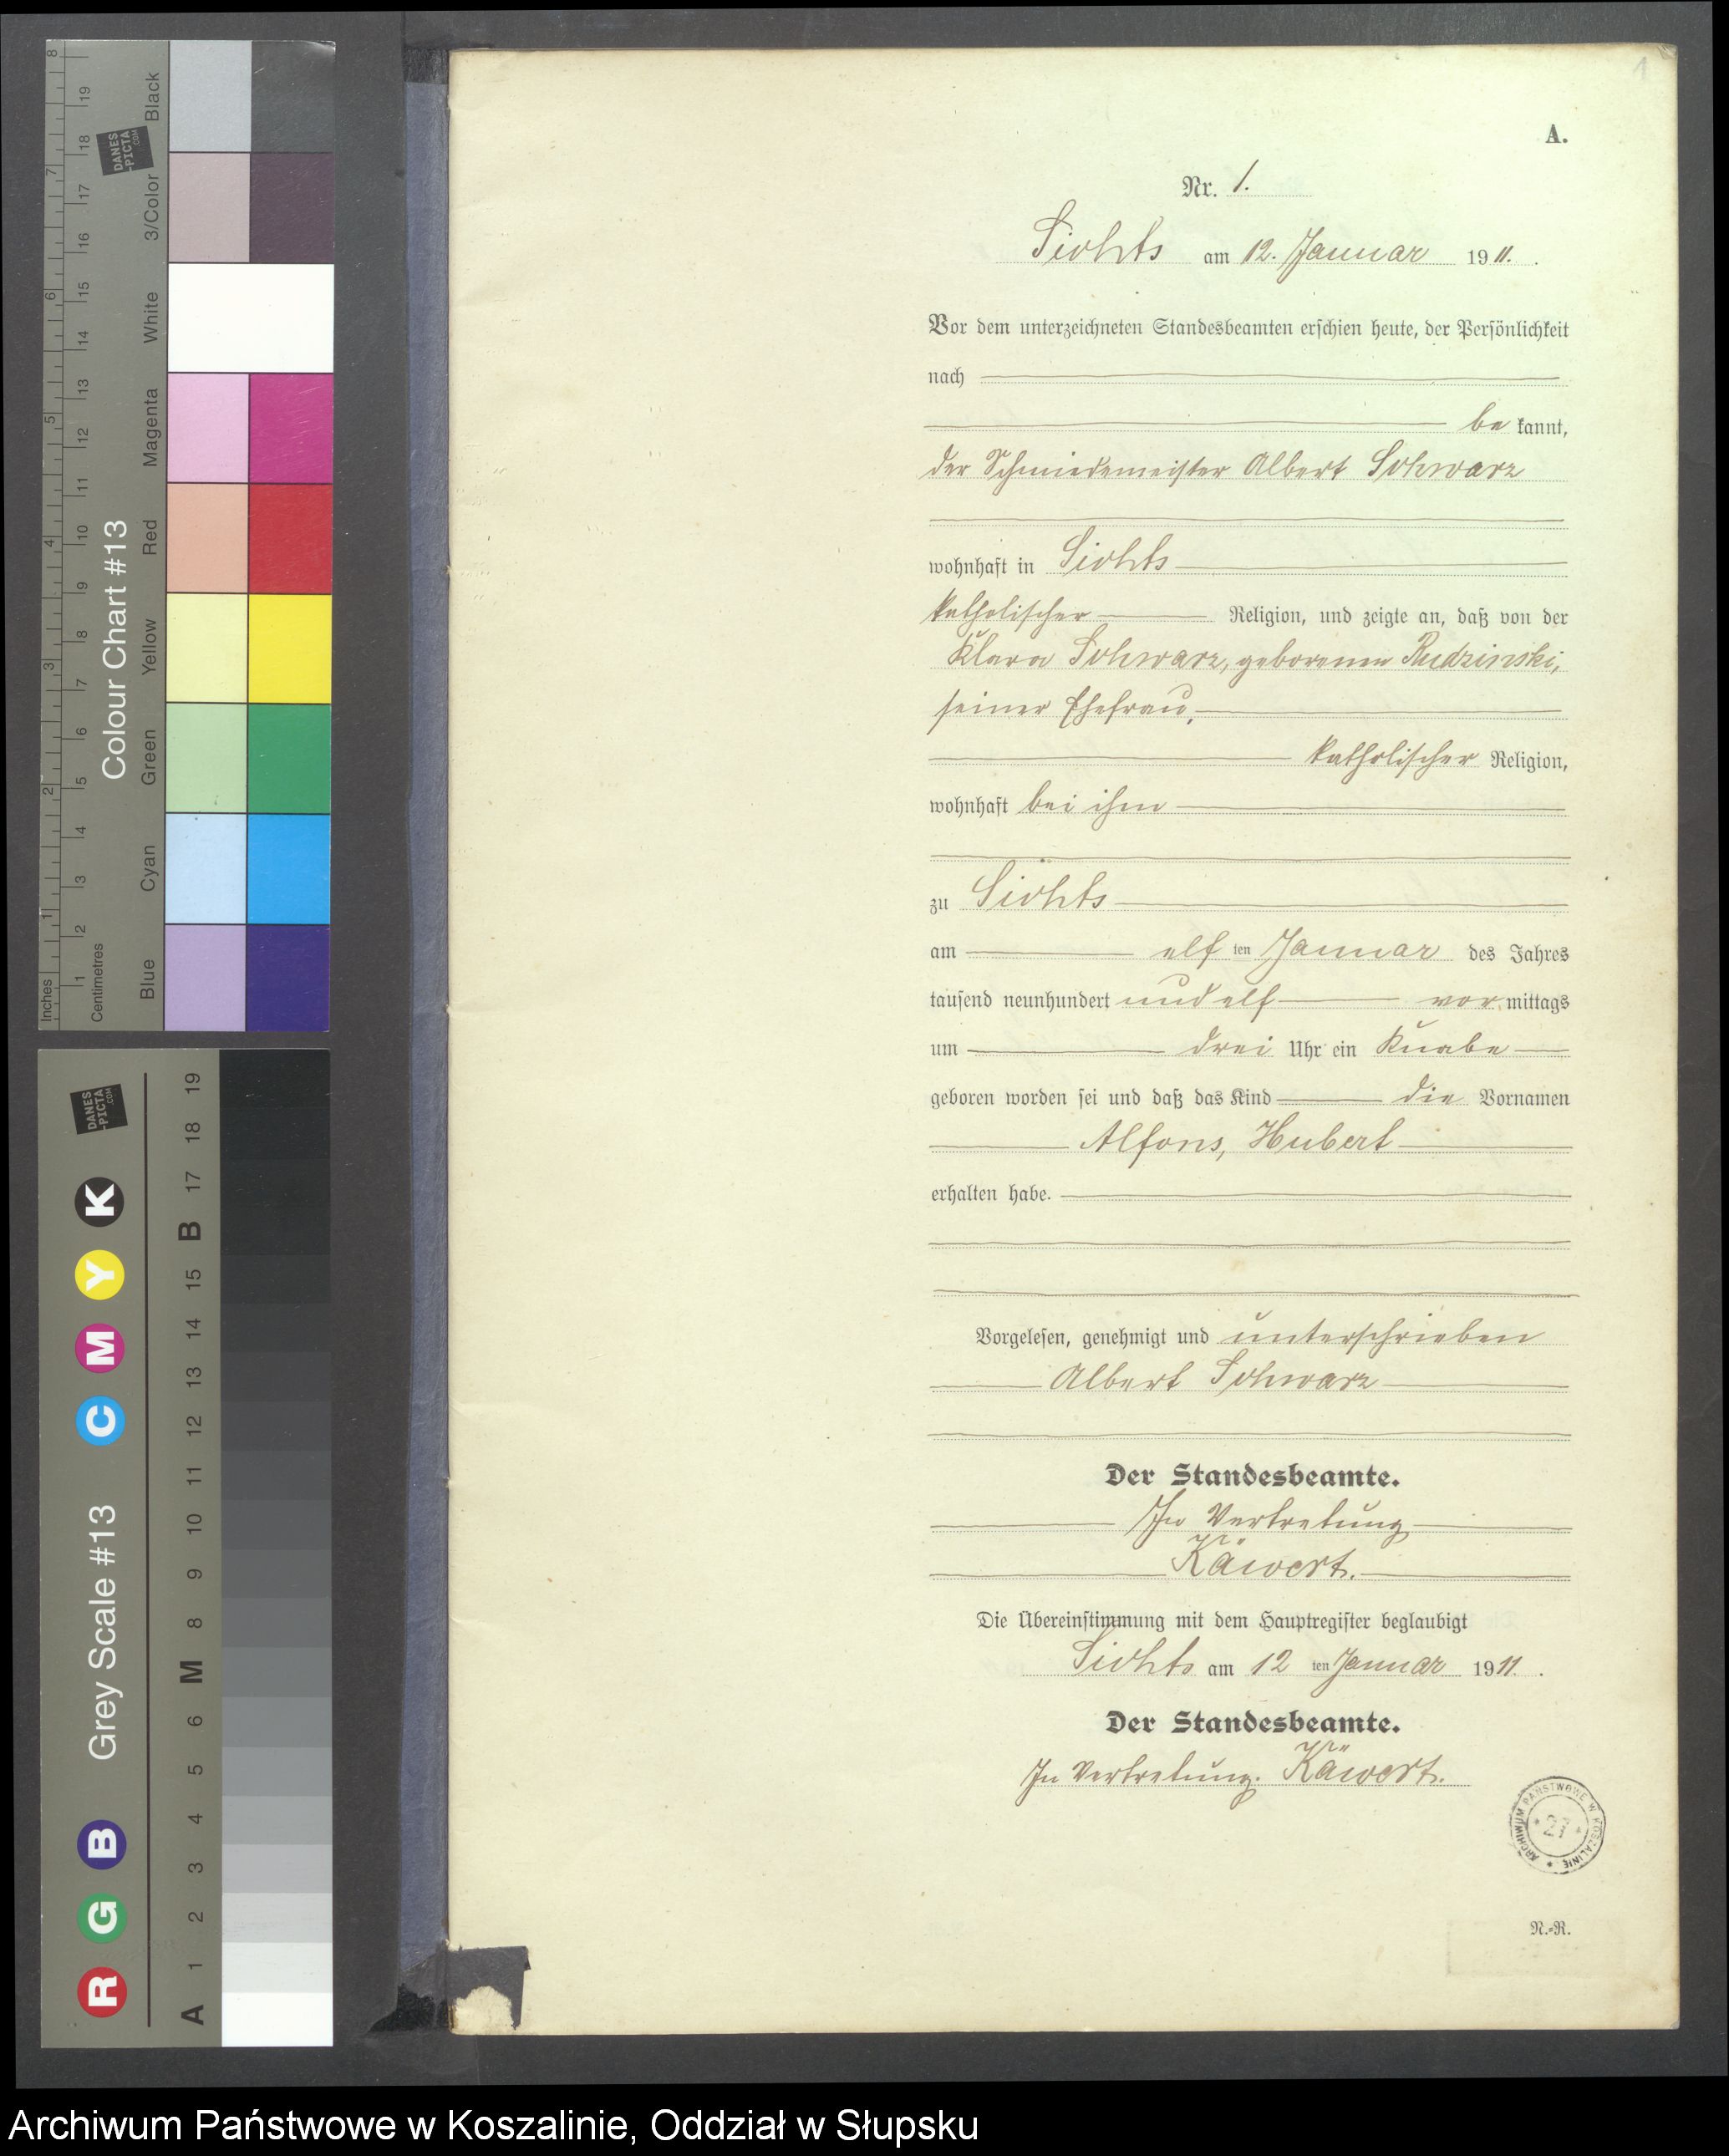 1
A.
Nr. 1.
Sichts am 12. Januar 1911.
Vor dem unterzeichneten Standesbeamten erschien heute, der Persönlichkeit
nach
be kannt,
der Schmiedemeister Albert Schwarz
wohnhaft in Sichts
katholischer Religion, und zeigte an, daß von der
Klara Schwarz, geborenen Rudzinski,
seiner Ehefrau,
katholischer Religion,
wohnhaft bei ihm
zu Sichts
am elf ten Januar des Jahres
tausend neunhundert und elf vor mittags
um drei Uhr ein Knabe
geboren worden sei und daß das Kind die Vornamen
Alfons, Hubert
erhalten habe.
Vorgelesen, genehmigt und unterschrieben
Albert Schwarz
Der Standesbeamte.
In Vertretung
Käwert.
Die Übereinstimmung mit dem Hauptregister beglaubigt
Sichts am 12 ten Januar 1911.
Der Standesbeamte.
In Vertretung. Käwert.
ARCHIWUM PAŃSTWOWE W KOSZALINIE
27
N.=R.
Inches
1 2 3 4 5 6 7 8
Centimetres
1 2 3 4 5 6 7 8 9 10 11 12 13 14 15 16 17 18 19
Colour Chart #13
Blue Cyan Green Yellow Red Magenta White 3/Color Black
DANES
-PICTA
.COM
Grey Scale #13
R G B C M Y K
A 1 2 3 4 5 6 M 8 9 10 11 12 13 14 15 B 17 18 19
DANES
-PICTA
.COM
Archiwum Państwowe w Koszalinie, Oddział w Słupsku